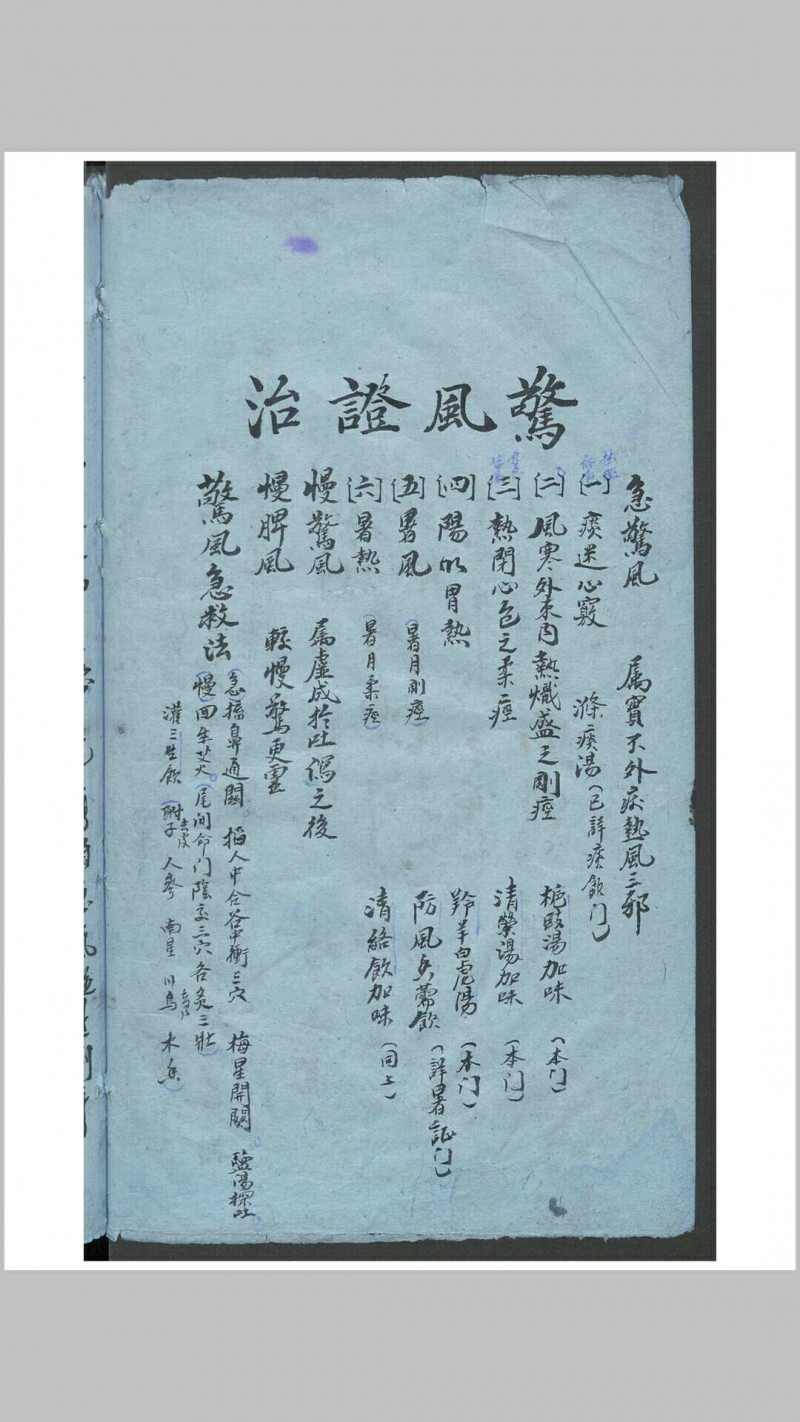 驚風證治
急驚風 屬實不外痰熱風三邪
[一]痰迷心竅 滌痰湯(已詳痰飲门)
[二]風寒外束内熱熾盛之剛痙 梔豉湯加味 (本门)
[三]熱閉心包之柔痙 清營湯加味 (本门)
[四]陽明胃熱 羚羊白虎湯 (本门)
[五]暑風 (暑月剛痙) 防風香薷飲 (詳暑証门)
[六]暑熱 (暑月柔痙) 清絡飲加味 (同上)
慢驚風 屬虛成於吐瀉之後
慢脾風 較慢驚更虛
驚風急救法
(急)搐鼻通關 掐人中合谷中衝三穴 梅星開關 鹽湯探吐
(慢)回生艾火(尾閭命门陰交三穴各灸三壯)
灌三生飲(附子去皮 人參 南星 川烏去皮 木香)